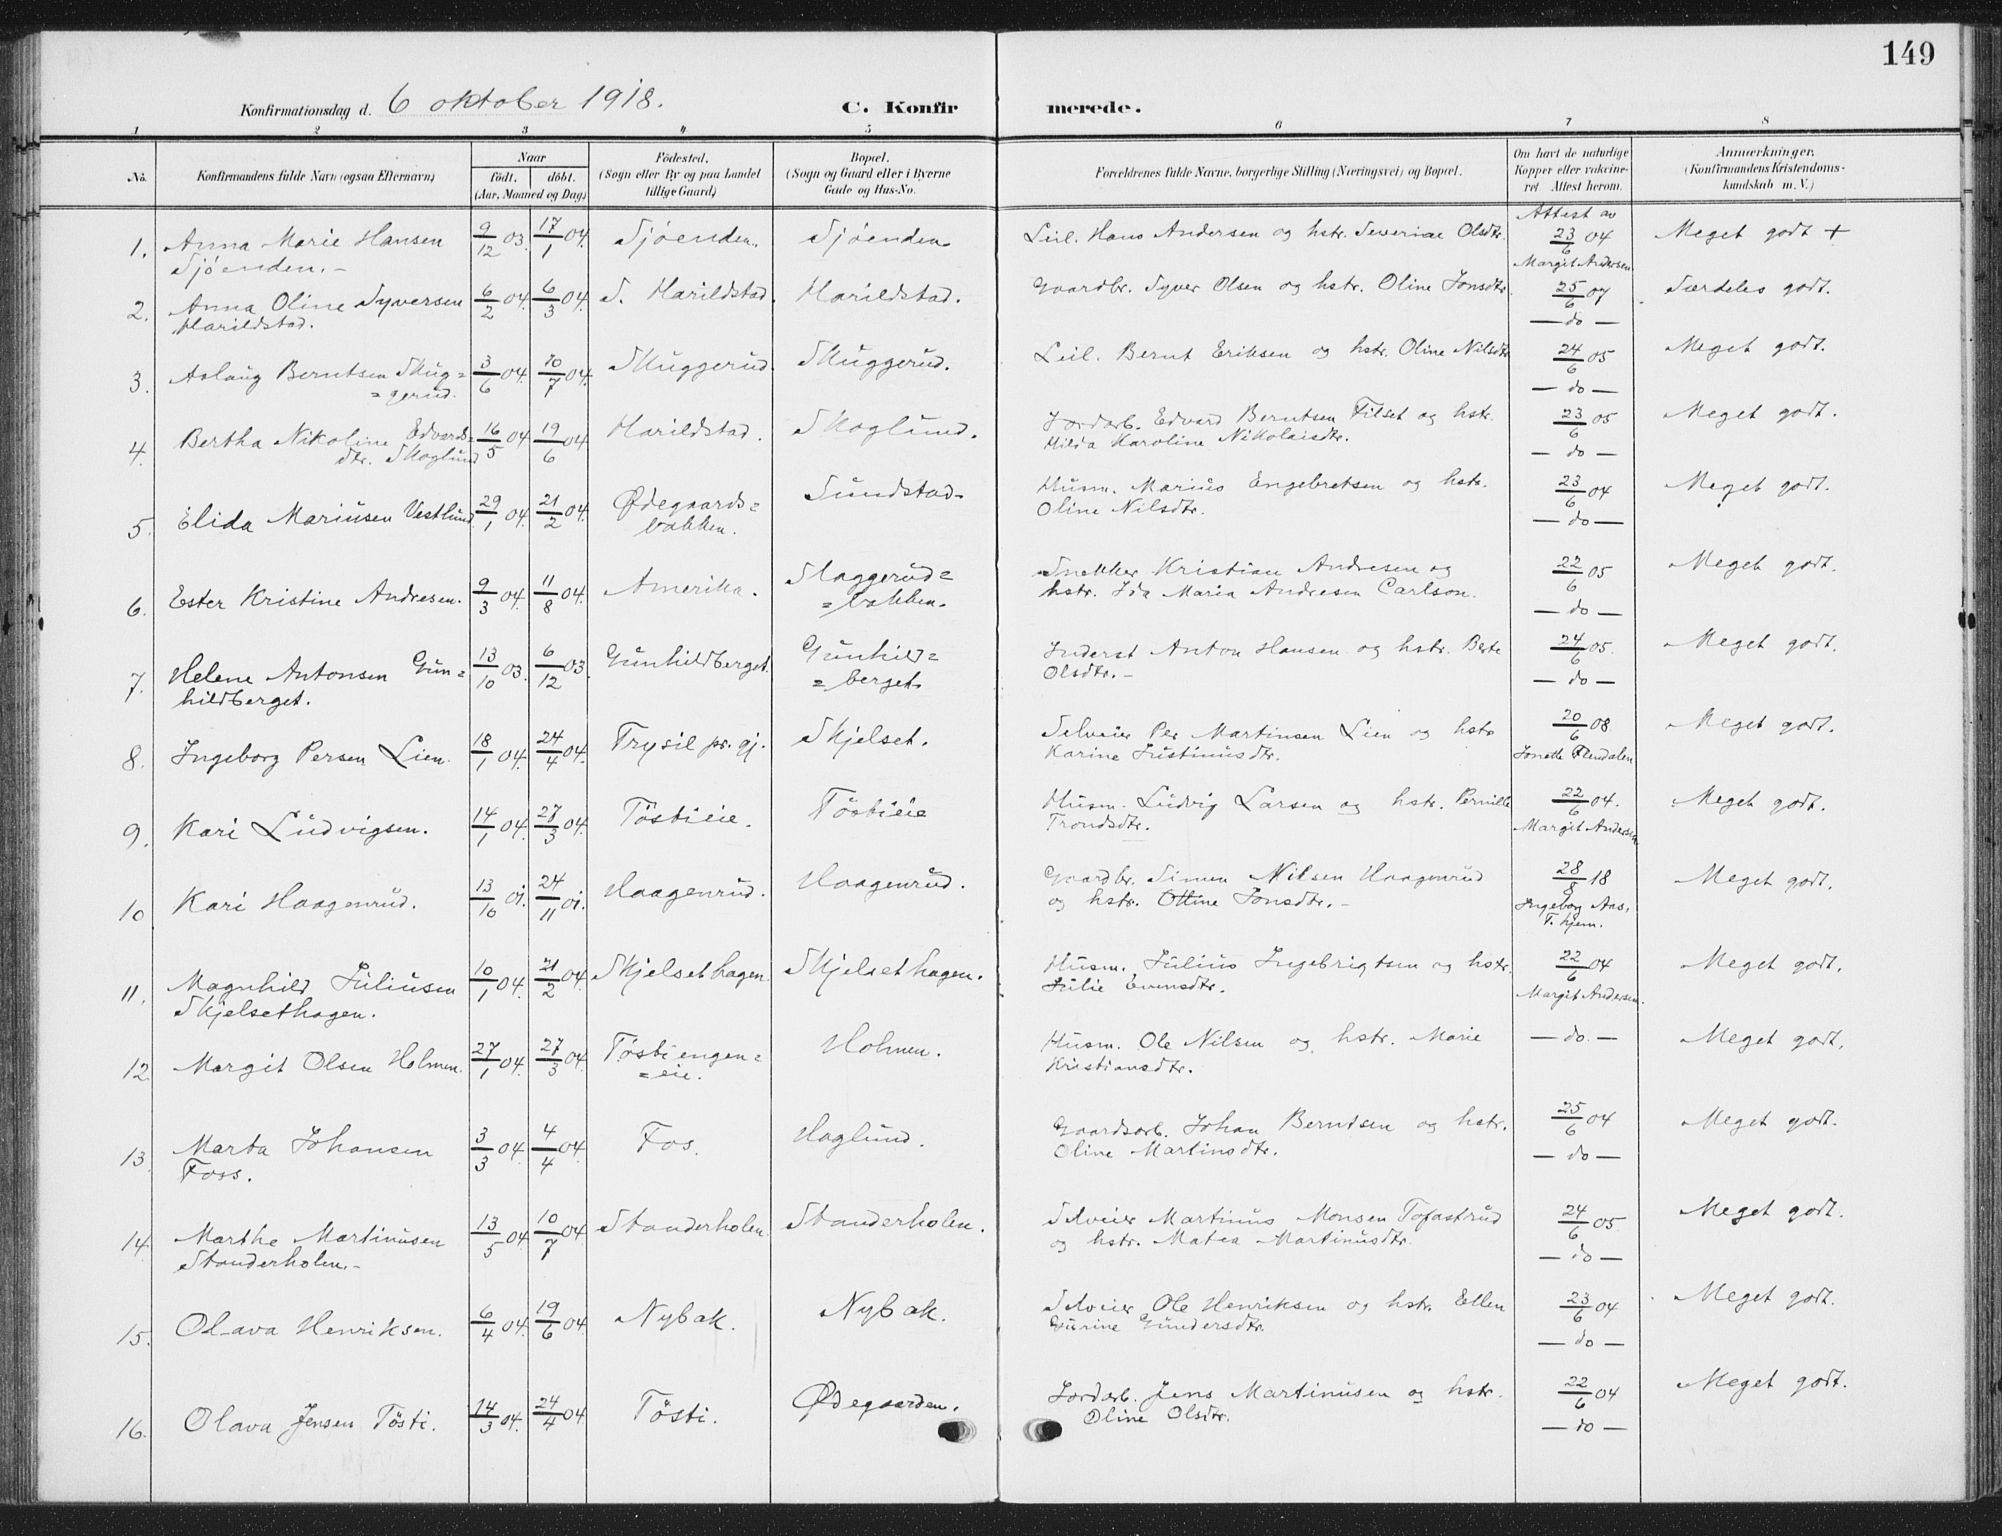 149
Konfirmationsdag d. 6 oktober 1918. C. Konfirmerede.
1 2 3 4 5 6 7 8
No. Konfirmandens fulde Navn (ogsaa Efternavn) Naar født. døbt. (Aar, Maaned og Dag) Fødested. (Sogn eller By og paa Landet tillige Gaard) Bopæl. (Sogn og Gaard eller i Byerne Gade og Hus-No. Forældrenes fulde Navne, borgerlige Stilling (Næringsvei) og Bopæl. Om havt de naturlige Kopper eller vaccineret Attest herom. Anmærkninger. (Konfirmandens Kristendomskundskab m. V.)
1. Anna Marie Hansen 9/12 03. 17/1 04. Sjøenden. Sjøenden. Leil. Hans Andersen og hstr. Severine Olsdtr. Attest av 23/6 04 Meget godt +
Sjøenden. Margit Andersen
2. Anna Oline Syversen 6/2 04. 6/3 04. S. Harildstad. Harildstad. Gaardbr. Syver Olsen og hstr. Oline Jonsdtr. 25/6 07 Særdeles godt.
Harildstad. — do —
3. Aslaug Berntsen Skug= 3/6 04. 10/7 04. Skuggerud. Skuggerud. Leil. Bernt Eriksen og hstr. Oline Nilsdtr 24/6 05 Meget godt.
=gerud. — do —
4. Bertha Nikoline Edvards= 16/5 04 19/6 04. Harildstad. Skoglund. Jordarb. Edvard Berntsen Filset og hstr. 23/6 05 Meget godt.
dtr. Skoglund Hilda Karoline Nikolaisdtr. — do —
5. Elida Mariusen Vestlund 29/1 04. 21/2 04. Ødegaards= Sundstad. Husm. Marius Engebretsen og hstr. 23/6 04 Meget godt.
bakken. Oline Nilsdtr. — do —
6. Ester Kristine Andresen. 9/3 04. 11/8 04. Amerika. Slaggerud= Snekker Kristian Andresen og 22/6 05 Meget godt.
=bakken. hstr. Ida Maria Andresen Carlson. — do —
7. Helene Antonsen Gun= 13/10 03. 6/12 03. Gunhildberget. Gunhild= Inderst Anton Hansen og hstr. Berte 24/6 05. Meget godt.
hildberget. =berget. Olsdtr. — do —
8. Ingeborg Persen Lien. 18/1 04. 24/4 04. Trysil pr. gj. Skjelset. Selveier Per Martinsen Lien og hstr 20/6 08. Meget godt.
Karine Justinusdtr. Jonette Flendalen
9. Kari Ludvigsen. 14/1 04. 27/3 04. Tøstieie. Tøstieie Husm. Ludvig Larsen og hstr. Pernille 22/6 04. Meget godt.
Trondsdtr. Margit Andersen
10 Kari Haagenrud. 13/10 01. 24/11 01. Haagenrud. Haagenrud. Gaardbr. Simen Nilsen Haagenrud 28/8 18 Meget godt.
og hstr. Ottine Jonsdtr. Ingeborg Aas,
T. hjem.
11. Magnhild Juliusen 10/1 04. 21/2 04. Skjelsethagen Skjelsethagen. Husm. Julius Ingebrigtsen og hstr. 22/6 04 Meget godt.
Skjelsethagen. Julie Evensdtr. Margit Andersen.
12. Margit Olsen Holmen. 27/1 04. 27/3 04. Tøstiengen= Holmen. Husm. Ole Nilsen og hstr. Marie — do — Meget godt.
=eie. Kristiansdtr.
13. Marta Johansen 3/3 04. 4/4 04. Fos. Haglund. Gaardsarb. Johan Berntsen og hstr. 25/6 04 Meget godt.
Foss. Oline Martinsdtr. — do —
14. Marthe Martinusen 13/5 04. 10/7 04 Standerholen. Standerholen. Selveier Martinus Monsen Tofastrud 24/6 05 Meget godt.
Standerholen. og hstr. Matea Martinusdtr. — do —
15. Olava Henriksen. 6/4 04. 19/6 04. Nybak. Nybak. Selveier Ole Henriksen og hstr. Ellen 23/6 04 Meget godt.
Gurine Gundersdtr. — do —
16. Olava Jensen Tøsti. 14/3 04. 24/4 04 Tøsti. Ødegaarden. Jordarb. Jens Martinusen og hstr. 22/6 04 Meget godt.
Oline Olsdtr. — do —